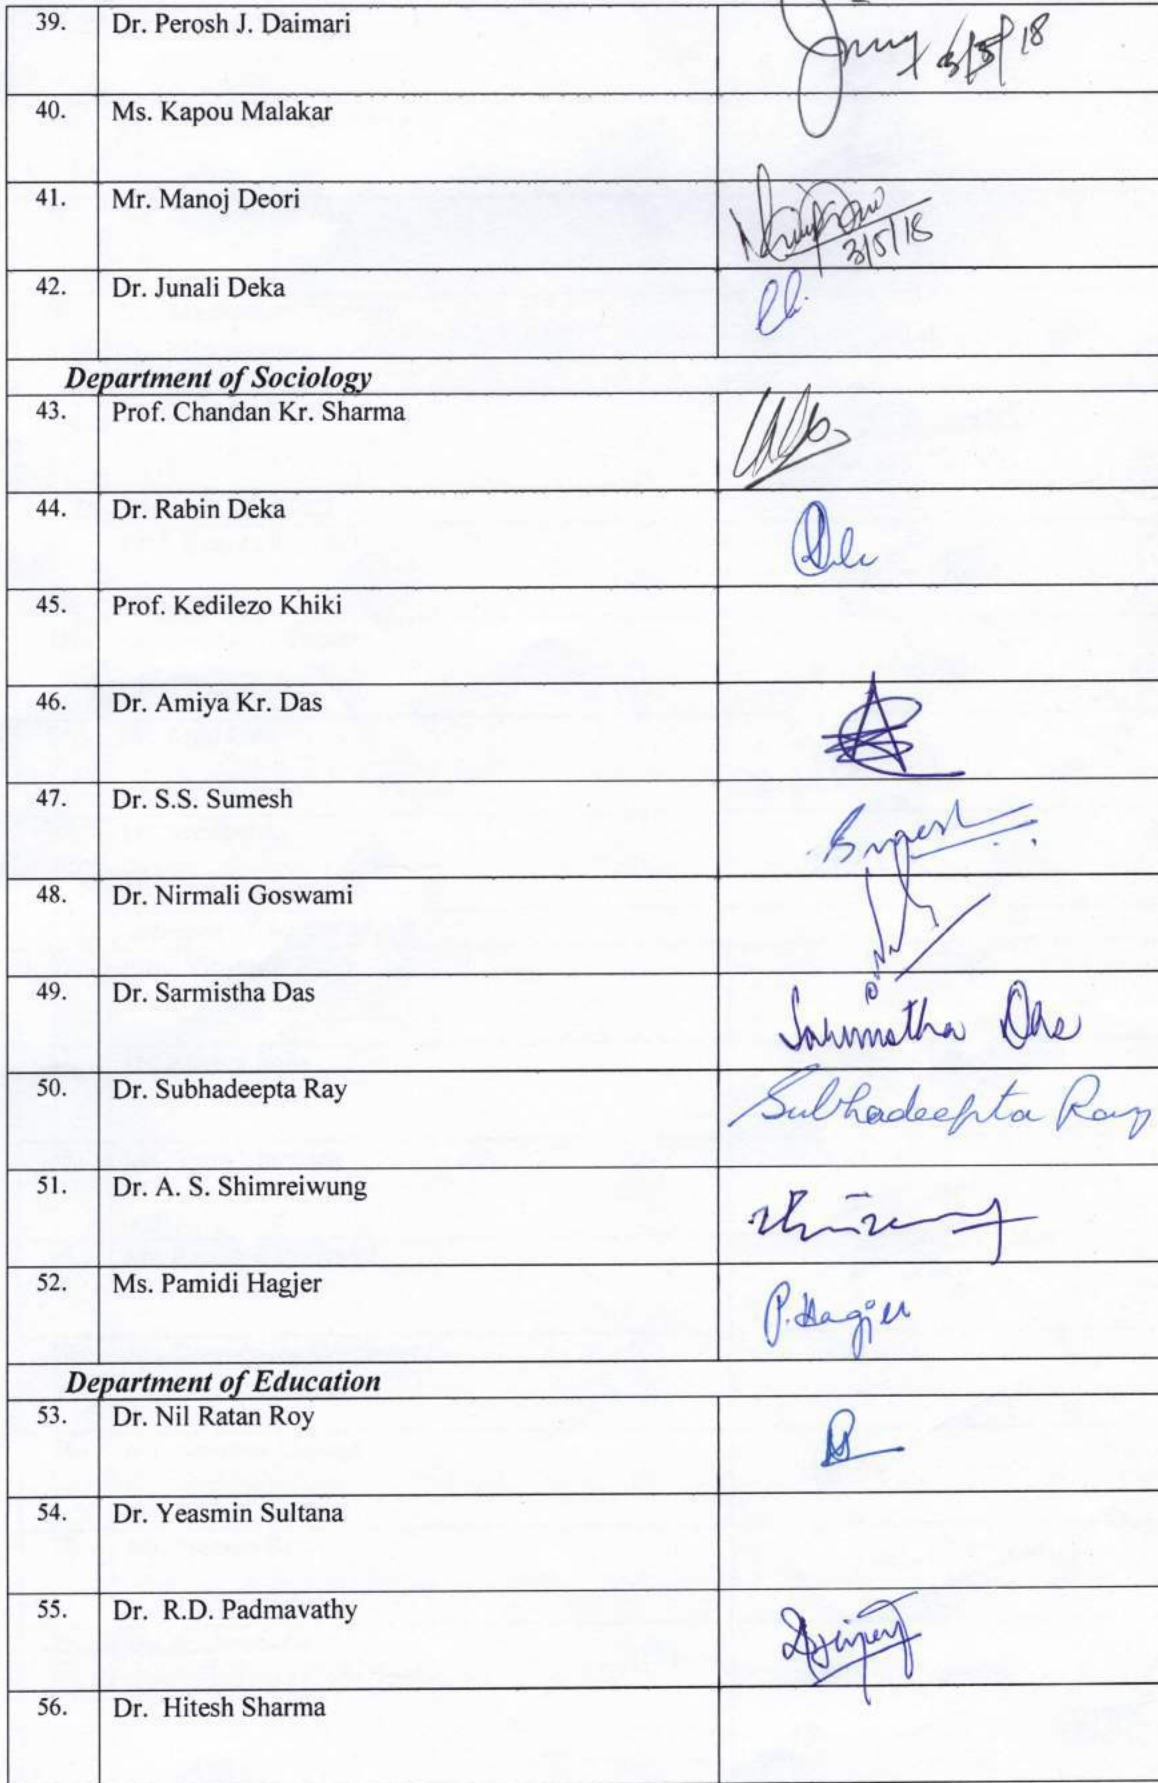 39. Dr. Perosh J. Daimari
3/5/18
40. Ms. Kapou Malakar
41. Mr. Manoj Deori
3/5/18
42. Dr. Junali Deka
Department of Sociology
43. Prof. Chandan Kr. Sharma
44. Dr. Rabin Deka
45. Prof. Kedilezo Khiki
46. Dr. Amiya Kr. Das
47. Dr. S.S. Sumesh
48. Dr. Nirmali Goswami
49. Dr. Sarmistha Das Sarmistha Das
50. Dr. Subhadeepta Ray Subhadeepta Ray
51. Dr. A. S. Shimreiwung
52. Ms. Pamidi Hagjer P. Hagjer
Department of Education
53. Dr. Nil Ratan Roy
54. Dr. Yeasmin Sultana
55. Dr. R.D. Padmavathy
56. Dr. Hitesh Sharma